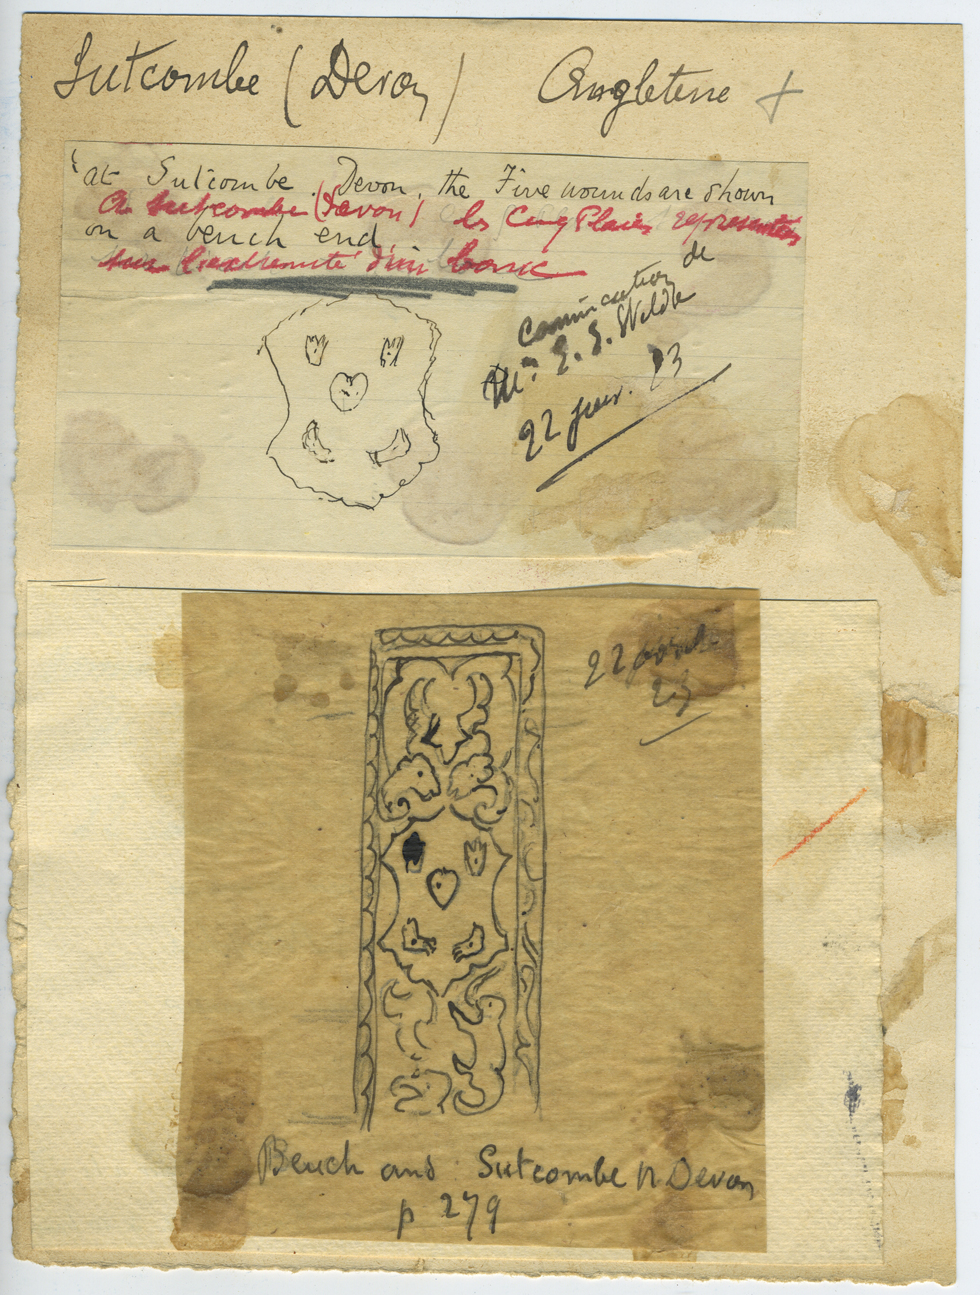 Sutcombe (Devon) Angleterre +
'at Sutcombe. Devon, the Five wounds are shown
A Sutcombe (Devon) les Cinq Plaies représentées
on a bench end
sur l'extremité d'un banc
de
Mr. E. E. Wilde
22 janv. 23
22
23
Bench and Sutcombe N Devon
p 279